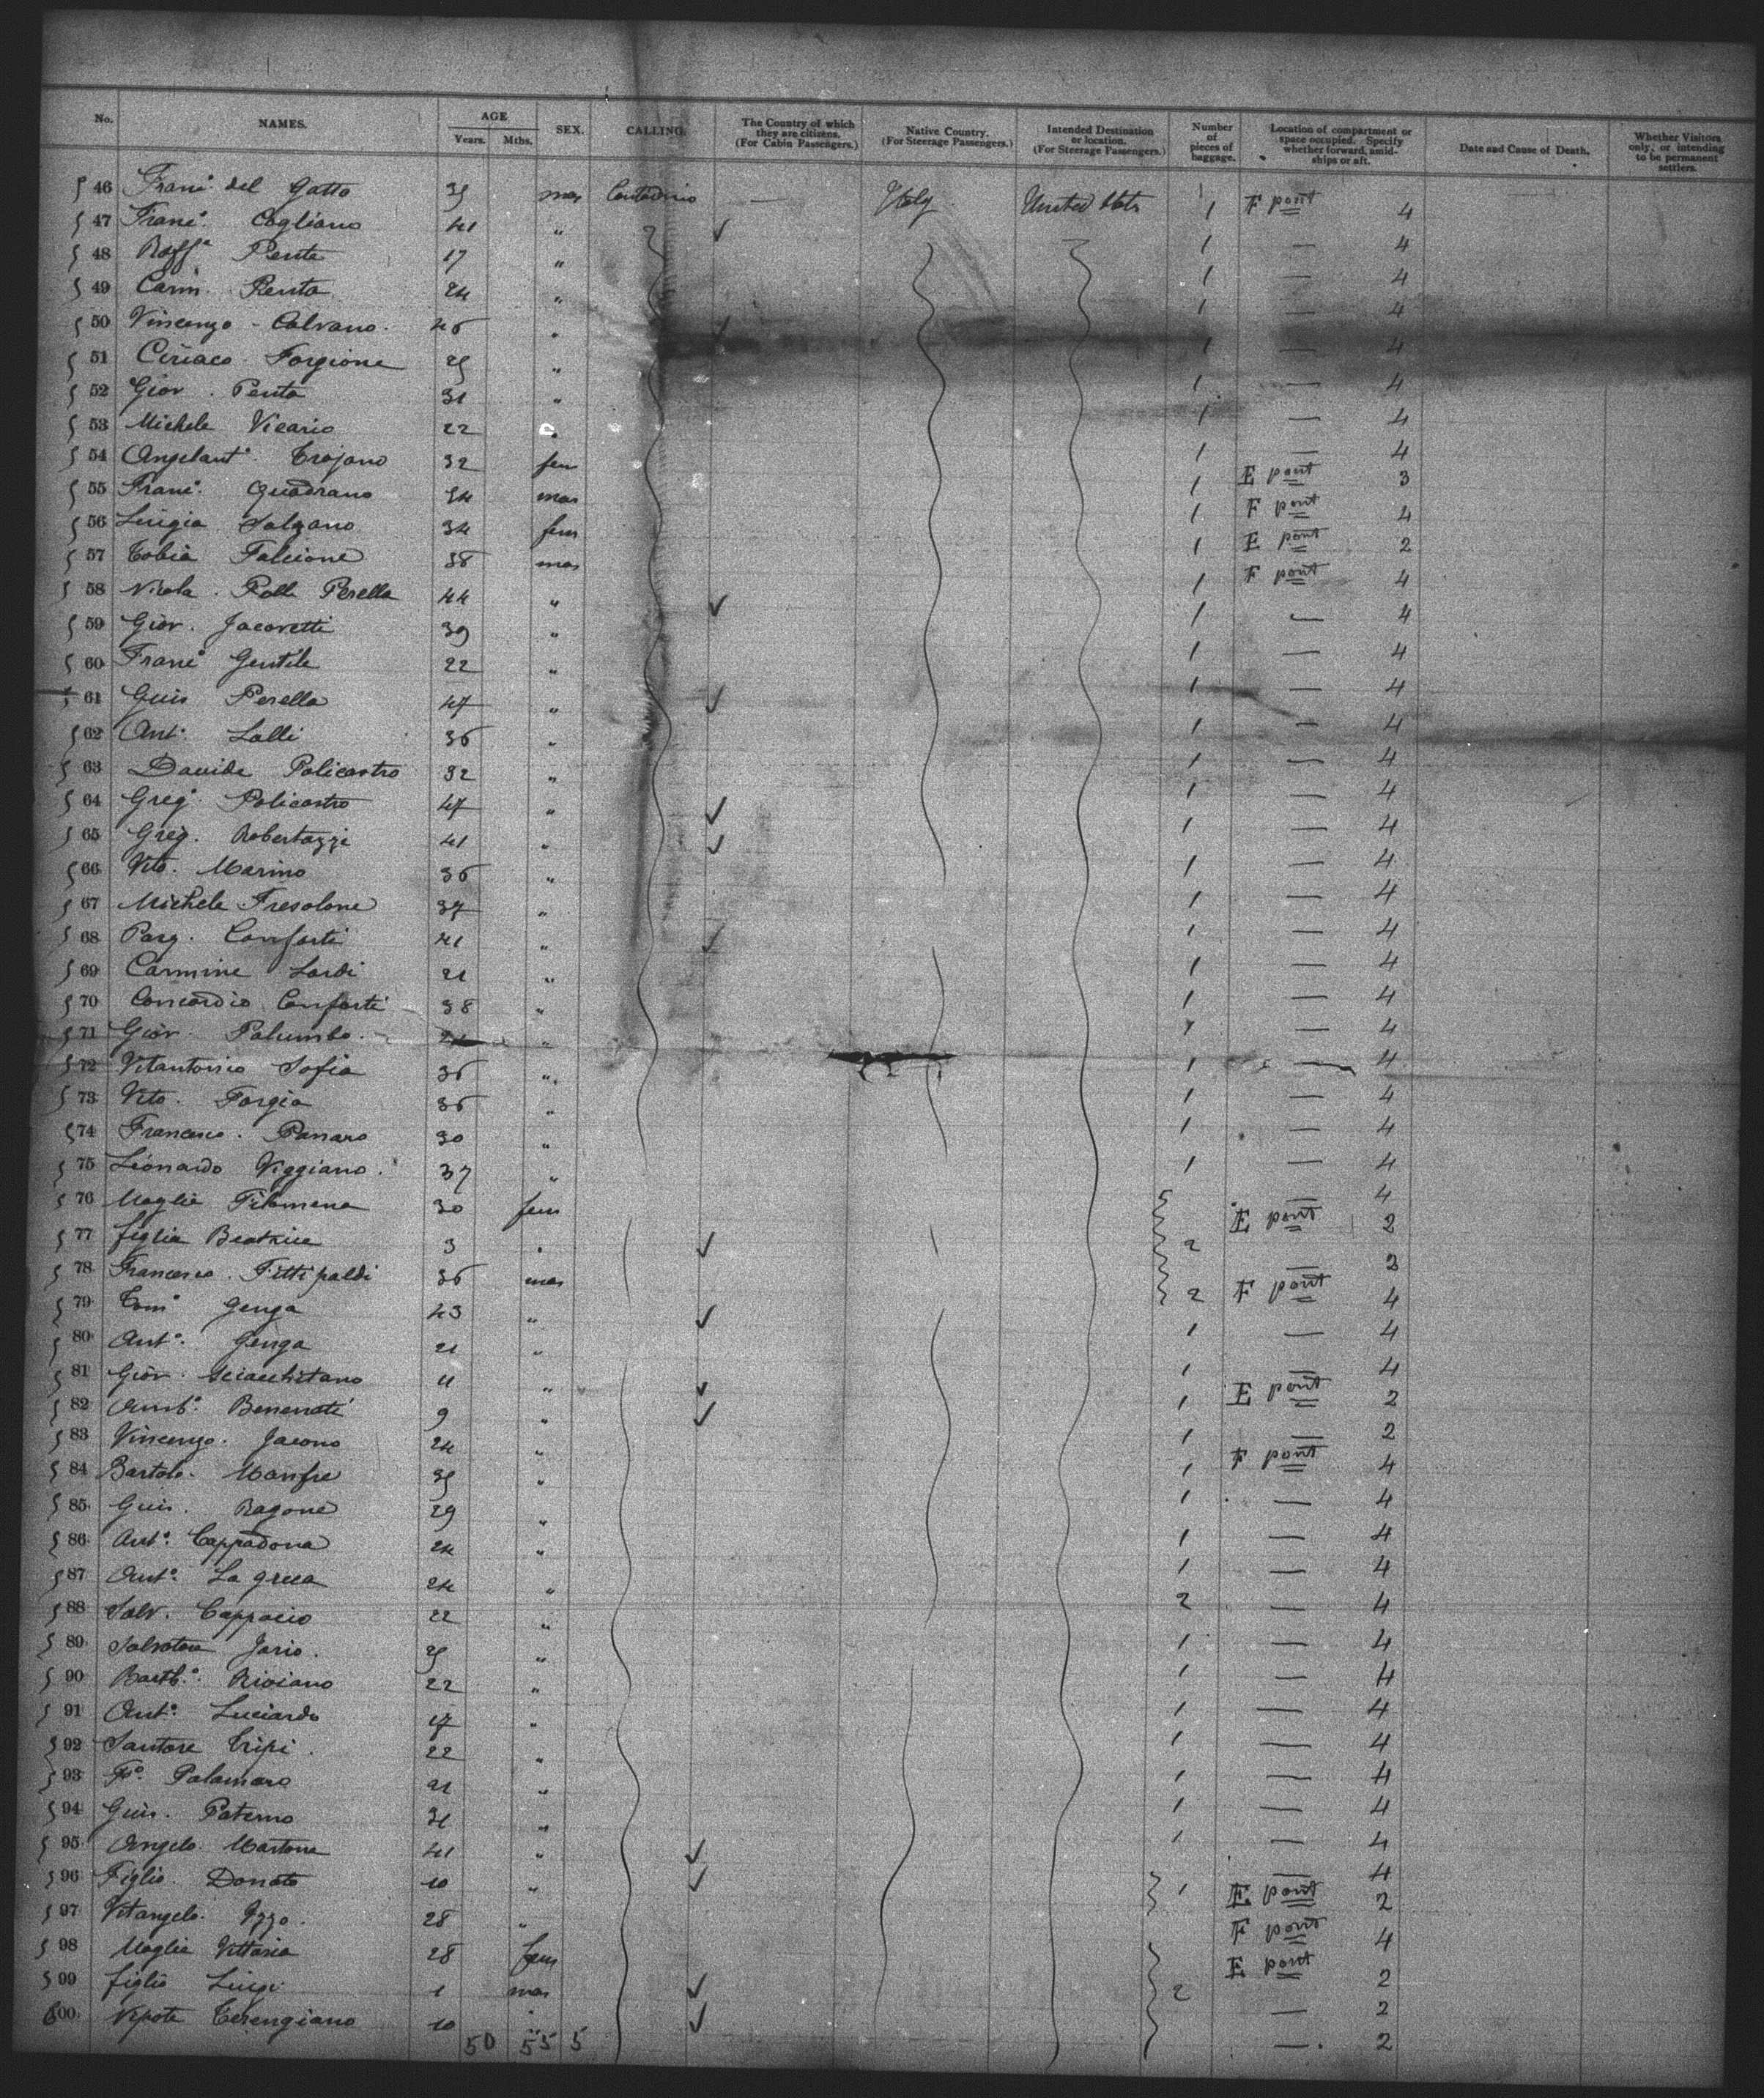 No. NAMES. AGE Years. Mths. SEX. CALLING. The Country of which they are citizens. (For Cabin Passengers.) Native Country. (For Steerage Passengers.) Intended Destination or location. (For Steerage Passengers.) Number of pieces of baggage. Location of compartment or space occupied. Specify whether forward, amidships or aft. Date and Cause of Death. Whether Visitors only, or intending to be permanent settlers.
46 Franc. del Gatto mas Contadino — Italy United Stats 1 F pont 4
47 Franc. Cogliano 41 " 1 — 4
48 Raffe Penta 17 " 1 — 4
49 Carm. Penta 24 " 1 — 4
50 Vincenzo Calvano 46 " 1 — 4
51 Ciriaco Forgione " 1 — 4
52 Giov. Penta 31 " 1 — 4
53 Michele Vicario 22 " 1 — 4
54 Angelant. Trojano 32 fem 1 E pont 3
55 Franc. Quadrano 34 mas 1 F pont 4
56 Luigia Salzano 34 fem 1 E pont 2
57 Tobia Falcione 38 mas 1 F pont 4
58 Nicola Perella 44 " 1 — 4
59 Giov. Jacovetti 39 " 1 — 4
60 Franc. Gentile 22 " 1 — 4
61 Guis Perella 47 " 1 — 4
62 Ant. Lalli 36 " 1 — 4
63 Davide Policastro 32 " 1 — 4
64 Greg. Policastro 47 " 1 — 4
65 Greg. Robertazzi 41 " 1 — 4
66 Vito. Marino 36 " 1 — 4
67 Michele Fresolone 37 " 1 — 4
68 Pasq. Conforti 41 " 1 — 4
69 Carmine Lardi 21 " 1 — 4
70 Concordio Conforti 38 " 1 — 4
71 Giov. Palumbo " 1 — 4
72 Vitantonio Sofia 36 " 1 — 4
73 Vito. Forgia 36 " 1 — 4
74 Francesco. Panaro 30 " 1 — 4
75 Leonardo Viggiano 37 " — 4
76 Moglie Filomena 30 fem E pont 2
77 figlia Beatrice 3 " 2 — 2
78 Francesco. Fittipaldi 36 mas 2 F pont 4
79 Tom. Genga 43 " 1 — 4
80 Ant. Genga 21 " 1 — 4
81 Giov. Sciacchitano 11 " 1 E pont 2
82 Amb. Benenati 9 " 1 — 2
83 Vincenzo. Jacono 24 " 1 F pont 4
84 Bartolo. Manfre " 1 — 4
85 Guis. Ragone 29 " 1 — 4
86 Ant. Cappadona 24 " 1 — 4
87 Ant. La greca 24 " 2 — 4
88 Salv. Cappacio 22 " 1 — 4
89 Salvatore Jario. " 1 — 4
90 Barth. 22 " 1 — 4
91 Ant. Luciardo 17 " 1 — 4
92 Santore Tripi 22 " 1 — 4
93 Palamaro 21 " 1 — 4
94 Guis. Paterno " 1 — 4
95 Angelo. Martone 41 " — 4
96 Figlio. Donato 10 " 1 E pont 2
97 Vitangelo. Izzo. 28 " F pont 4
98 Moglie Vittoria 28 fem E pont 2
99 figlio Luigi 1 mas 2 — 2
600 Nipote 10 " — 2
50 55 5